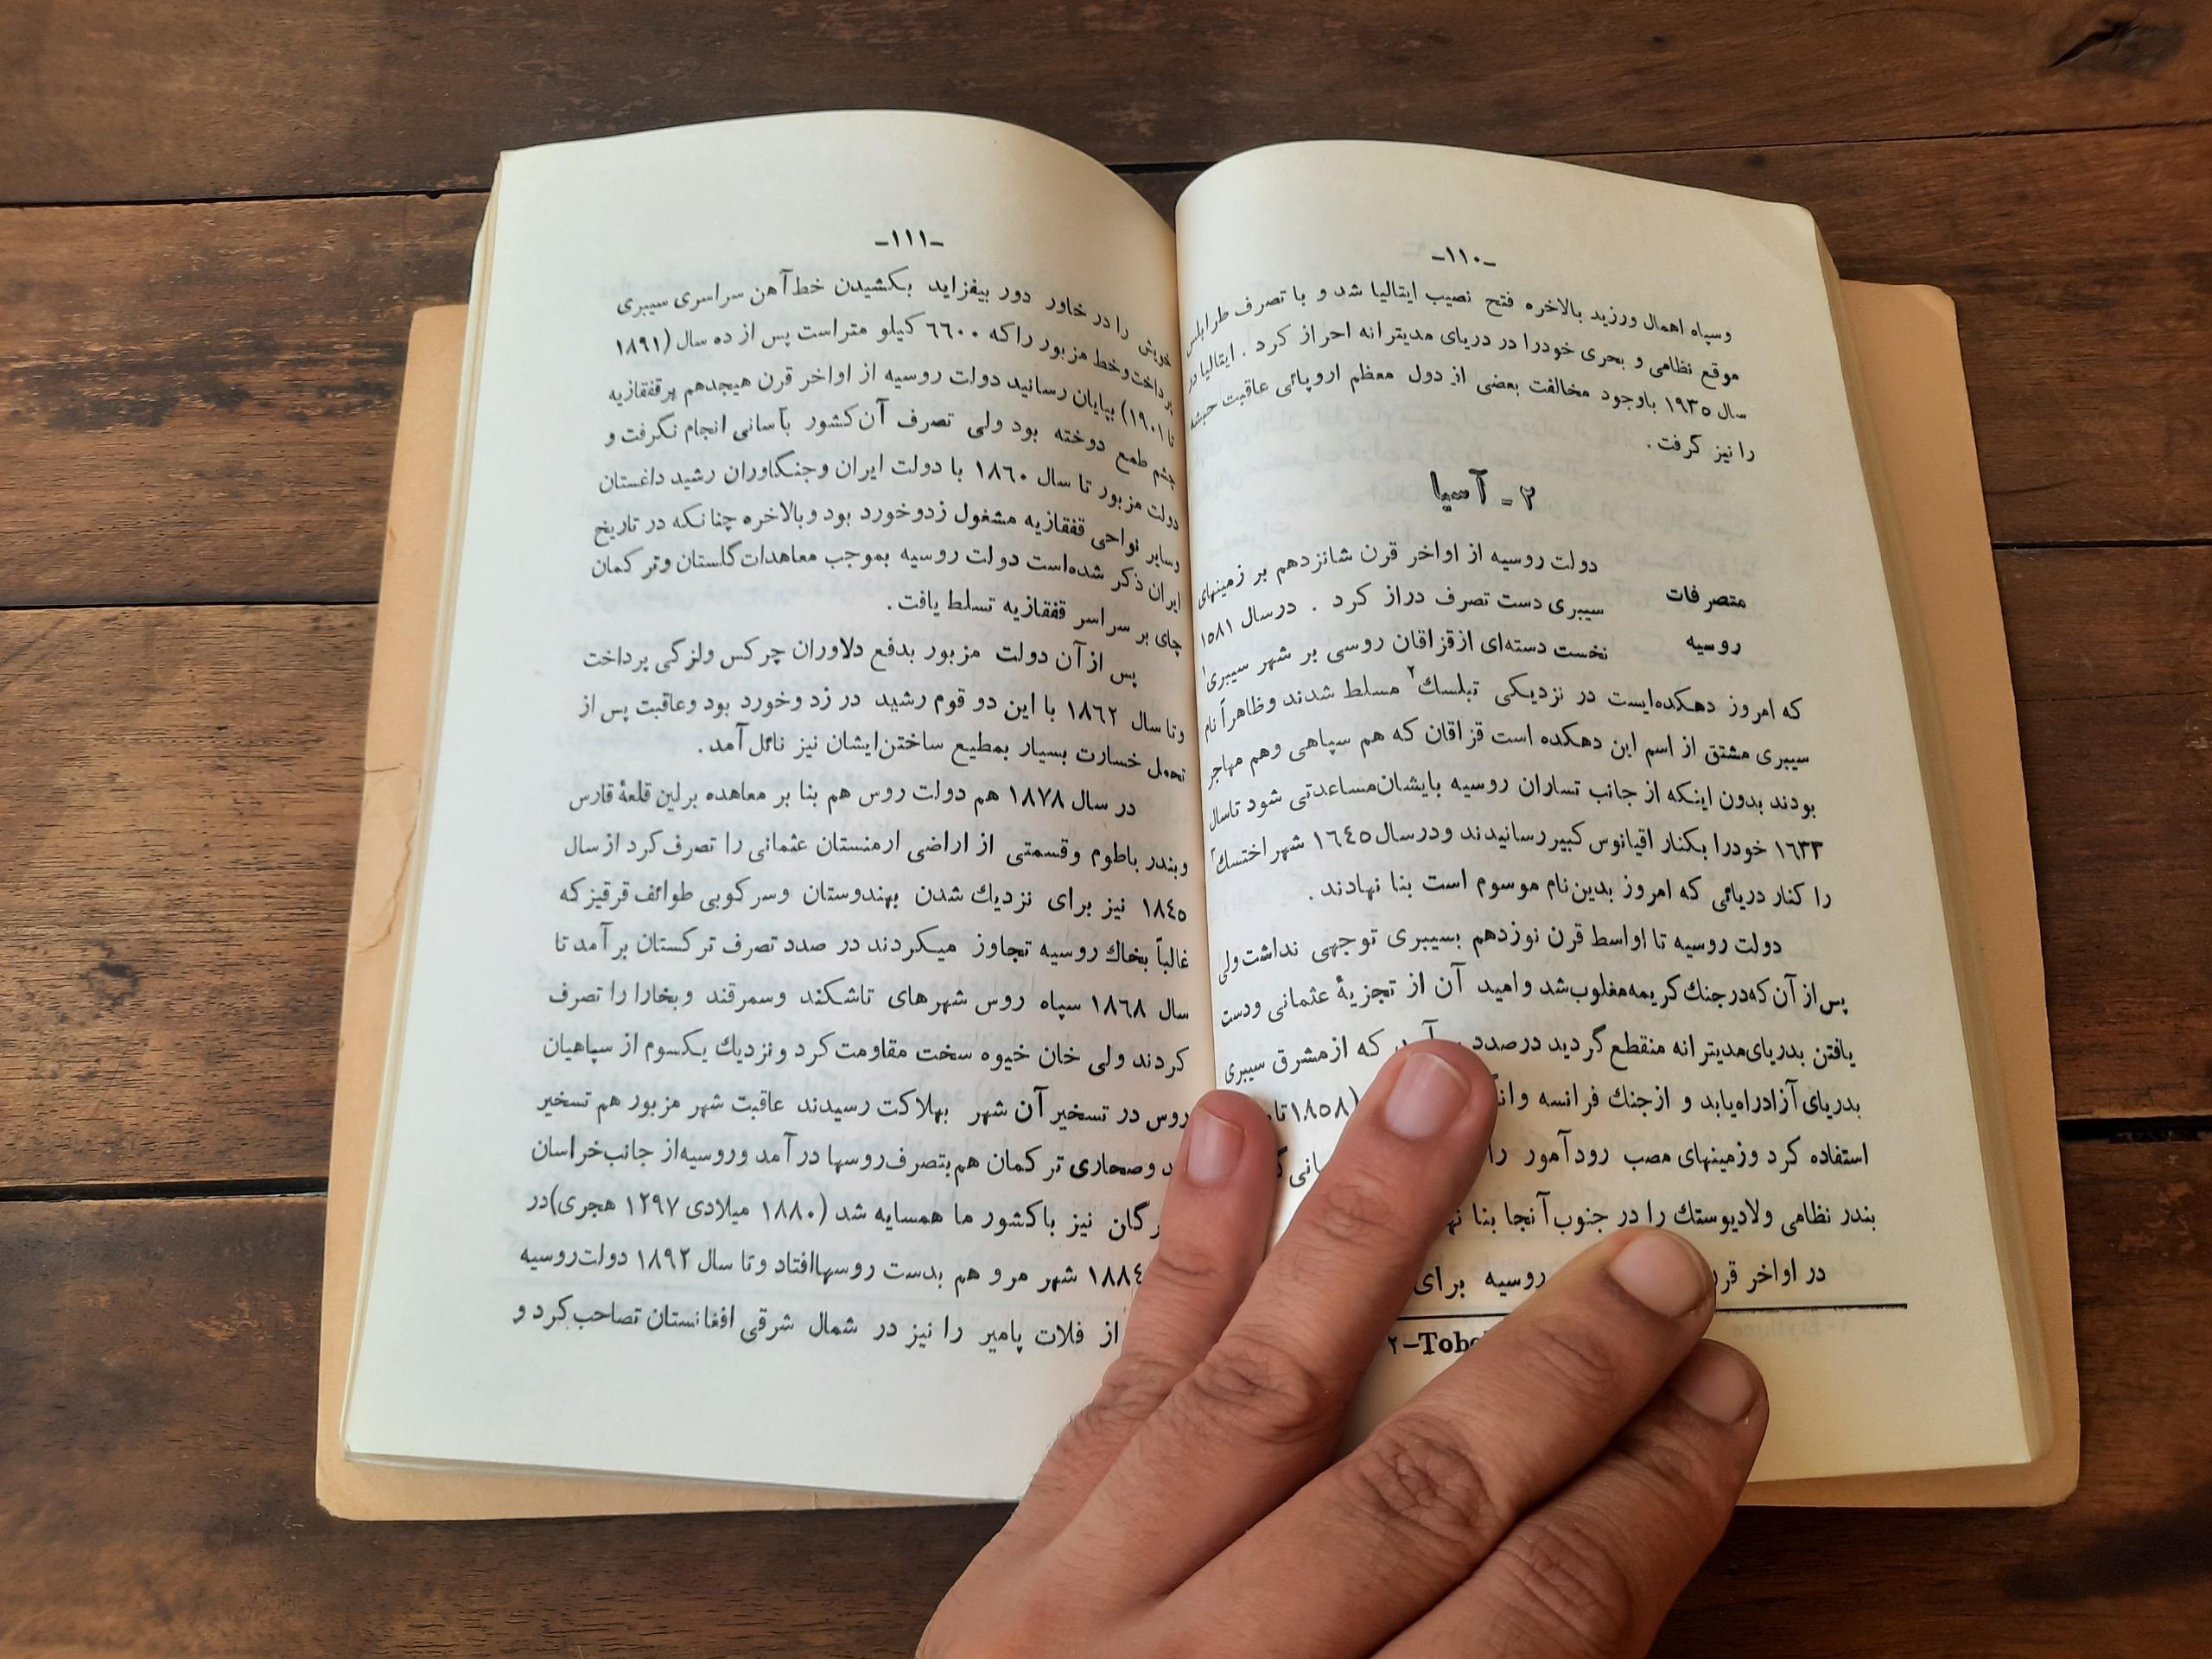 -۱۱۰-
وسپاه اهمال ورزید بالاخره فتح نصیب ایتالیا شد و با تصرف طرابلس
موقع نظامی و بحری خودرا در دریای مدیترانه احراز کرد . ایتالیا در
سال ۱۹۳۵ باوجود مخالفت بعضی از دول معظم اروپائی عاقبت حبشه
را نیز گرفت .
۲ - آسیا
متصرفات
روسیه
دولت روسیه از اواخر قرن شانزدهم بر زمینهای
سیبری دست تصرف دراز کرد . درسال ۱۵۸۱
نخست دسته‌ای ازقزاقان روسی بر شهر سیبری۱
که امروز دهکده‌ایست در نزدیکی تبلسك۲ مسلط شدند وظاهراً نام
سیبری مشتق از اسم این دهکده است قزاقان که هم سپاهی وهم مهاجر
بودند بدون اینکه از جانب تساران روسیه بایشان‌مساعدتی شود تاسال
۱۶۳۳ خودرا بکنار اقیانوس کبیررسانیدند ودرسال ۱۶۴۵ شهر اختسك۳
را کنار دریائی که امروز بدین‌نام موسوم است بنا نهادند .
دولت روسیه تا اواسط قرن نوزدهم بسیبری توجهی نداشت‌ولی
پس‌از آن که‌درجنك‌کریمه‌مغلوب‌شد وامید آن از تجزیهٔ عثمانی ودست
یافتن بدریای‌مدیترانه منقطع گردید درصدد که ازمشرق سیبری
بدریای‌آزادراه‌یابد و ازجنك فرانسه (۱۸۵۸
استفاده کرد وزمینهای مصب رودآمور را
بندر نظامی ولادیوستك را در جنوب‌آنجا بنا
در اواخر روسیه برای
۲-
-۱۱۱-
خویش را در خاور دور بیفزاید بکشیدن خط‌آهن سراسری سیبری
پرداخت‌وخط مزبور راکه ۶۶۰۰ کیلو متراست پس از ده سال (۱۸۹۱
تا ۱۹۰۱) بپایان رسانید دولت روسیه از اواخر قرن هیجدهم برقفقازیه
چشم طمع دوخته بود ولی تصرف آن‌کشور بآسانی انجام نگرفت و
دولت مزبور تا سال ۱۸۶۰ با دولت ایران وجنگاوران رشید داغستان
وسایر نواحی قفقازیه مشغول زدوخورد بود وبالاخره چنانکه در تاریخ
ایران ذکر شده‌است دولت روسیه بموجب معاهدات‌گلستان وترکمان
چای بر سراسر قفقازیه تسلط یافت .
پس ازآن دولت مزبور بدفع دلاوران چرکس ولزگی پرداخت
وتا سال ۱۸۶۲ با این دو قوم رشید در زد وخورد بود وعاقبت پس از
تحمل خسارت بسیار بمطیع ساختن‌ایشان نیز نائل‌آمد .
در سال ۱۸۷۸ هم دولت روس هم بنا بر معاهده برلین قلعهٔ قارس
وبندر باطوم وقسمتی از اراضی ارمنستان عثمانی را تصرف‌کرد ازسال
۱۸۴۵ نیز برای نزدیك شدن بهندوستان وسرکوبی طوائف قرقیزکه
غالباً بخاك روسیه تجاوز میکردند در صدد تصرف ترکستان برآمد تا
سال ۱۸۶۸ سپاه روس شهرهای تاشکند وسمرقند وبخارا را تصرف
کردند ولی خان خیوه سخت مقاومت‌کرد ونزدیك یکسوم از سپاهیان
روس در تسخیر آن شهر بهلاکت رسیدند عاقبت شهر مزبور هم تسخیر
وصحاری ترکمان هم‌بتصرف‌روسها درآمد وروسیه‌از جانب‌خراسان
نیز باکشور ما همسایه شد (۱۸۸۰ میلادی ۱۲۹۷ هجری)در
۱۸۸۴ شهر مرو هم بدست روسهاافتاد وتا سال ۱۸۹۲ دولت‌روسیه
از فلات پامیر را نیز در شمال شرقی افغانستان تصاحب‌کرد و